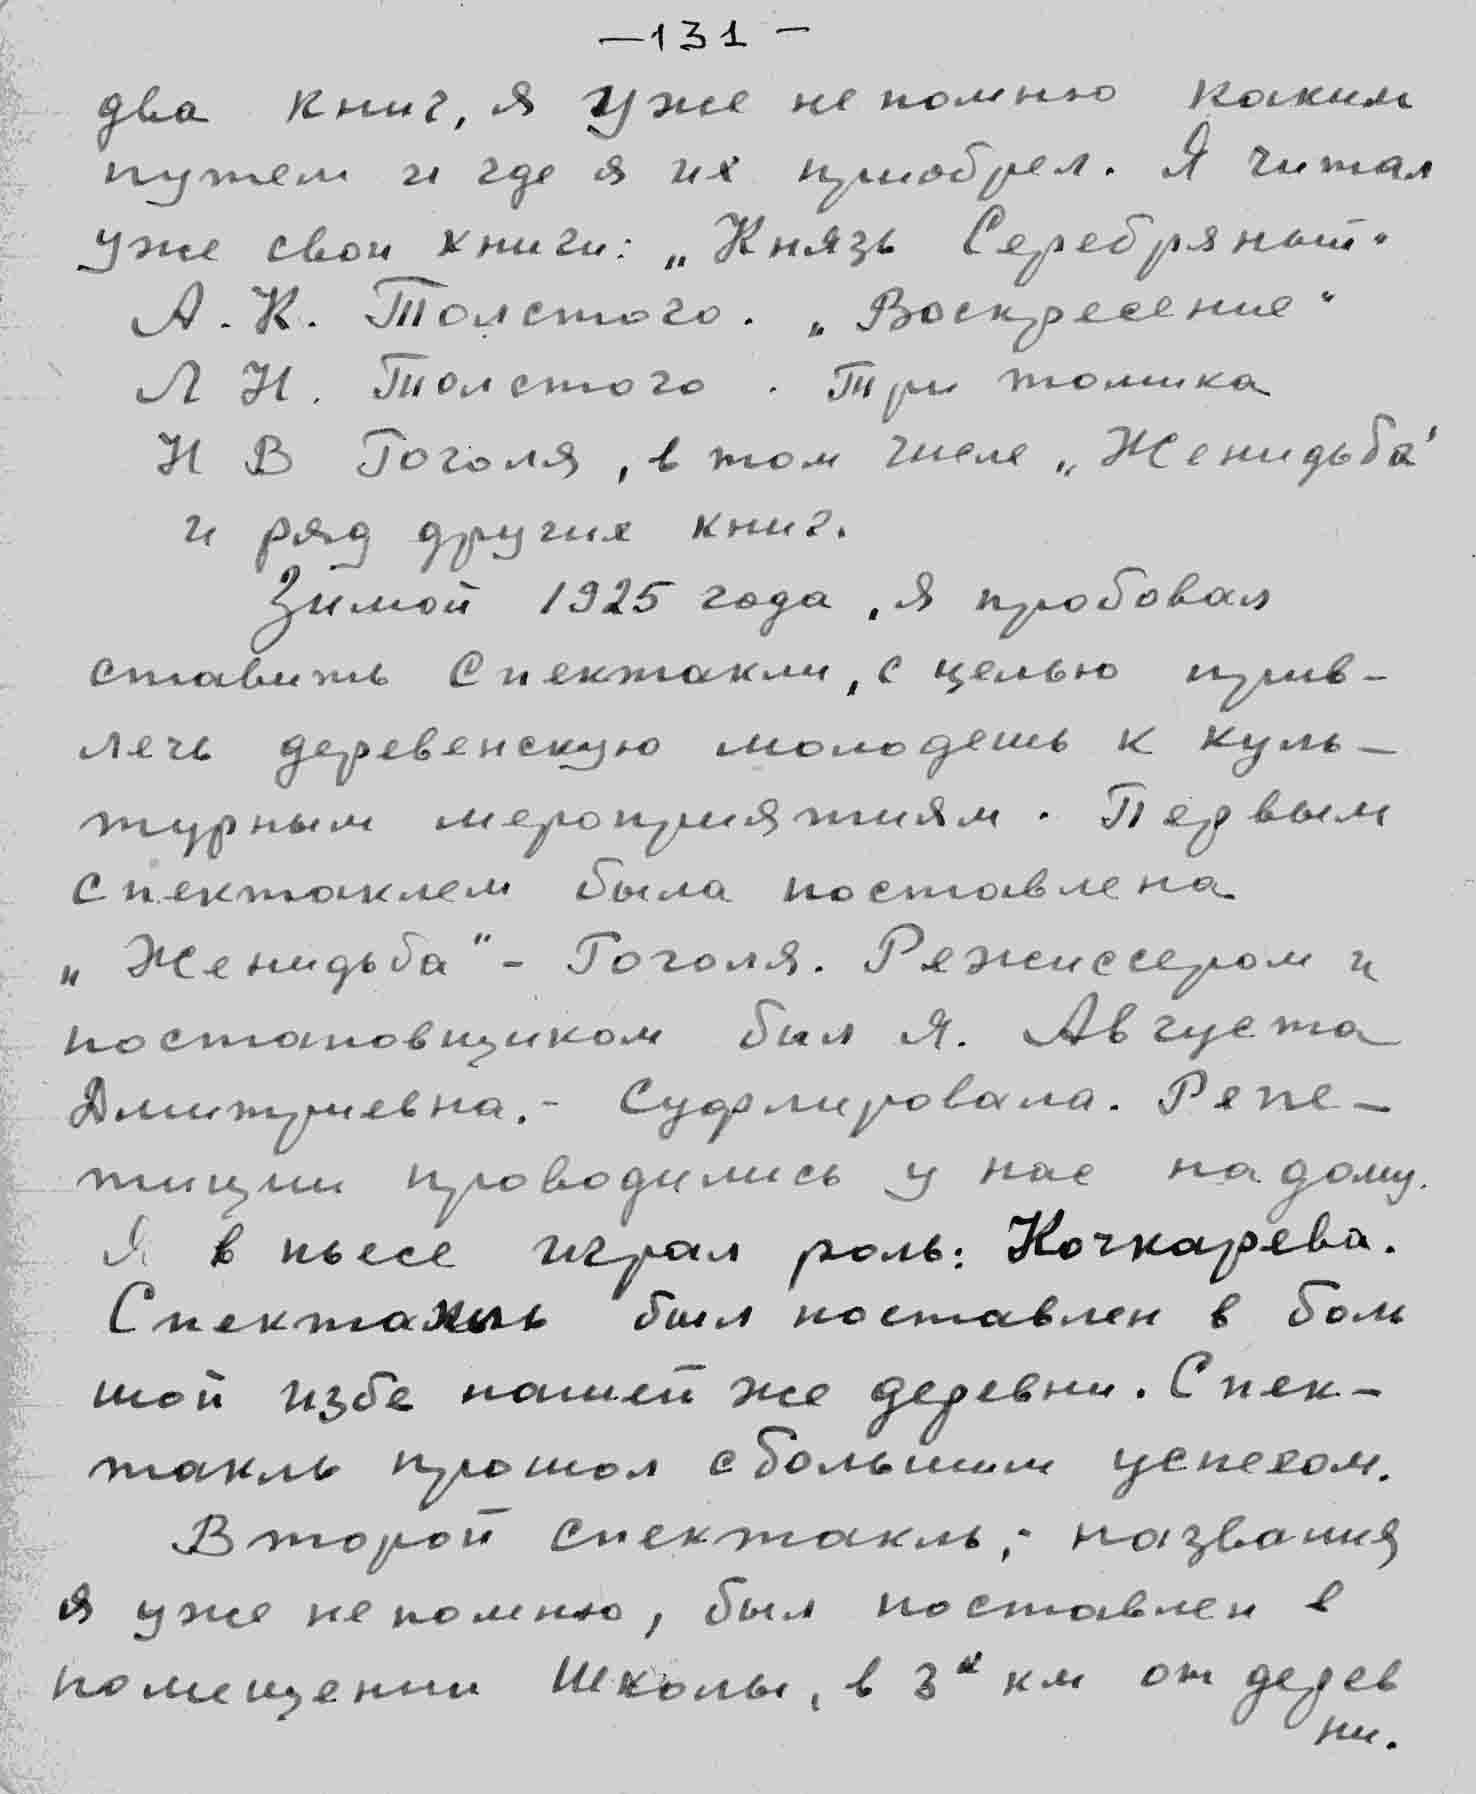 —131—
два книг, я уже не помню каким
путем и где я их приобрел. Я читал
уже свои книги: „Князь Серебряный"
А. К. Толстого. „Воскресение"
Л Н. Толстого. Три томика
Н В Гоголя, в том числе „Женидьба"
и ряд других книг.
Зимой 1925 года, я пробовал
ставить спектакли, с целью прив-
лечь деревенскую молодешь к куль-
турным мероприятиям. Первым
спектаклем была поставлена
„Женидьба" - Гоголя. Режиссером и
постановщиком был я. Августа
Дмитриевна. - Суфлировала. Репе-
тиции проводились у нас на дому.
Я в пьесе играл роль: Кочкарева.
Спектакль был поставлен в боль
шой избе нашей же деревни. Спек-
такль прошол с большим успехом.
Второй спектакль, - названия
я уже не помню, был поставлен в
помещении школы, в 3х км от дерев
ни.